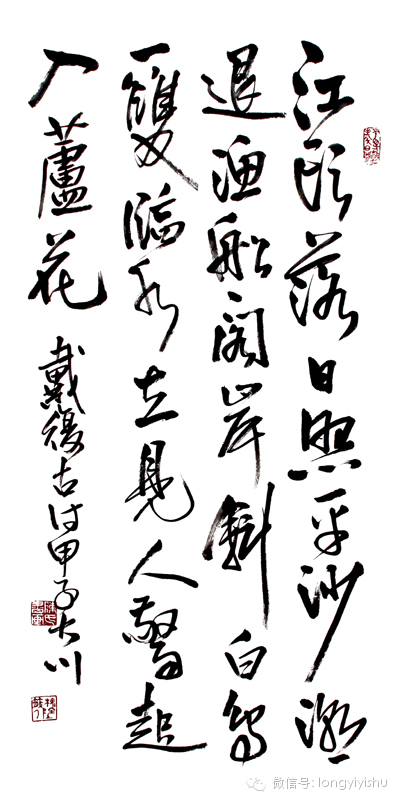 江頭落日照平沙潮
退漁船閣岸斜白鳥
一雙臨水立見人驚起
入蘆花 戴復古詩甲子大川
微信号: longyiyishu